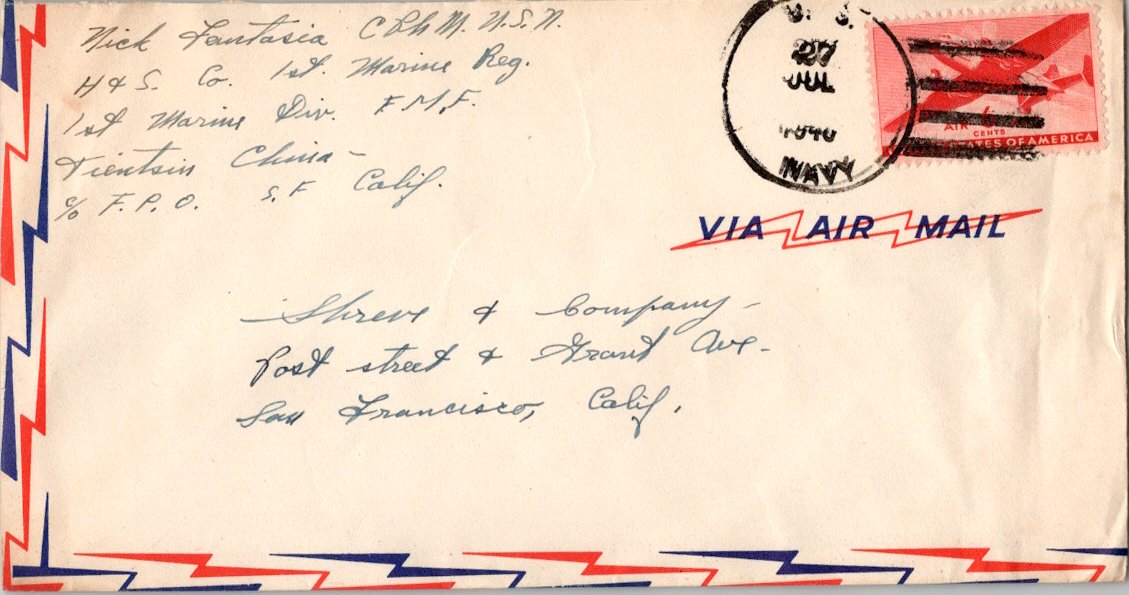 Nick Fantasia CPhM. U.S.N.
H & S. Co. 1st. Marine Reg.
1st Marine Div. F.M.F.
Tientsin China -
c/o F.P.O. S.F Calif.
U. S.
27
JUL
1946
NAVY
AIR 6
CENTS
STATES OF AMERICA
VIA AIR MAIL
- Shreve & Company -
Post street & Grant Ave.
San Francisco, Calif.